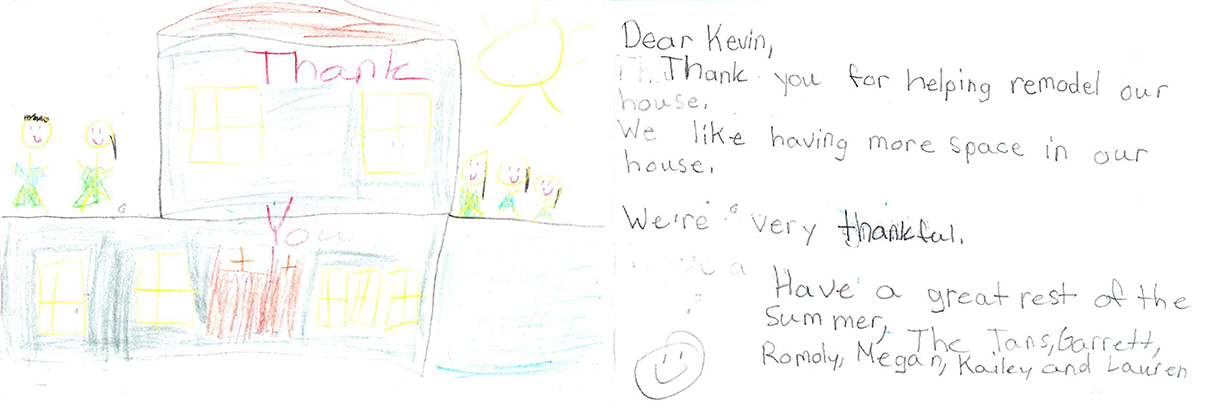 Thank
You
Dear Kevin,
Thank you for helping remodel our
house.
We like having more space in our
house.
We're very thankful.
Have a great rest of the
Summer,
The Tans, Garrett,
Romoly, Megan, Kailey and Lauren